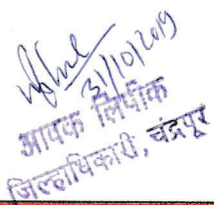 31/10/2019
आवक लिपीक
जिल्हाधिकारी, चंद्रपूर